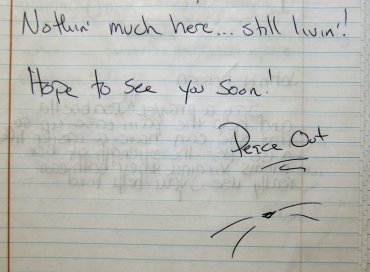 Nothin' much here... still livin'!
Hope to see you soon!
Peace Out